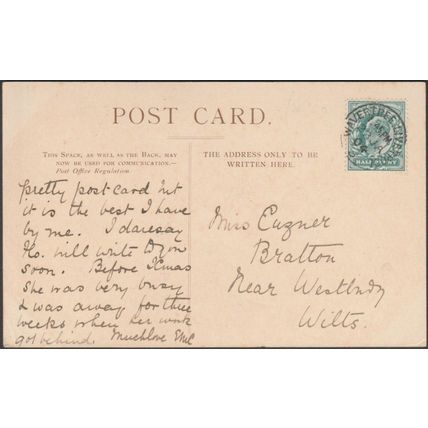 POST CARD.
THIS SPACE, AS WELL AS THE BACK, MAY
NOW BE USED FOR COMMUNICATION.—
Post Office Regulation
THE ADDRESS ONLY TO BE
WRITTEN HERE.
HALF PENNY
Pretty post card but
it is the best I have
by me. I daresay
will write to you
soon. Before Xmas
she was very busy
& was away for three
weeks when her work
got behind. Much love
Miss
Bratton
Near Westbury
Wilts.